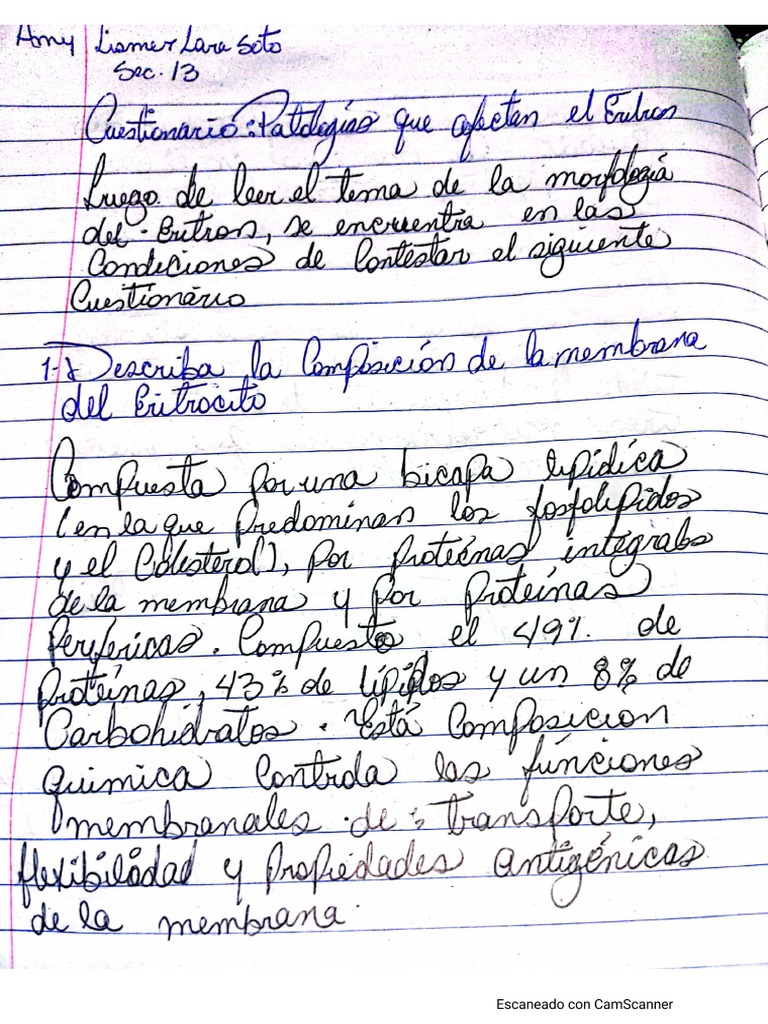 Amy Liamer Lara Soto
Sec. 13
Cuestionario: Patologías que afectan el Eritron
Luego de leer el tema de la morfología
del Eritron, se encuentra en las
Condiciones de Contestar el siguiente
Cuestionario
1-) Describa la Composición de la membrana
del Eritrocito
Compuesta por una bicapa lipídica
(en la que predominan los fosfolípidos
y el Colesterol), por proteínas integrales
de la membrana y por proteínas
Periféricas. Compuesto el 49% de
proteínas, 43% de lípidos y un 8% de
Carbohidratos. Está Composicion
química Controla las funciones
membranales de: Transporte,
flexibilidad y propiedades antigénicas
de la membrana.
Escaneado con CamScanner